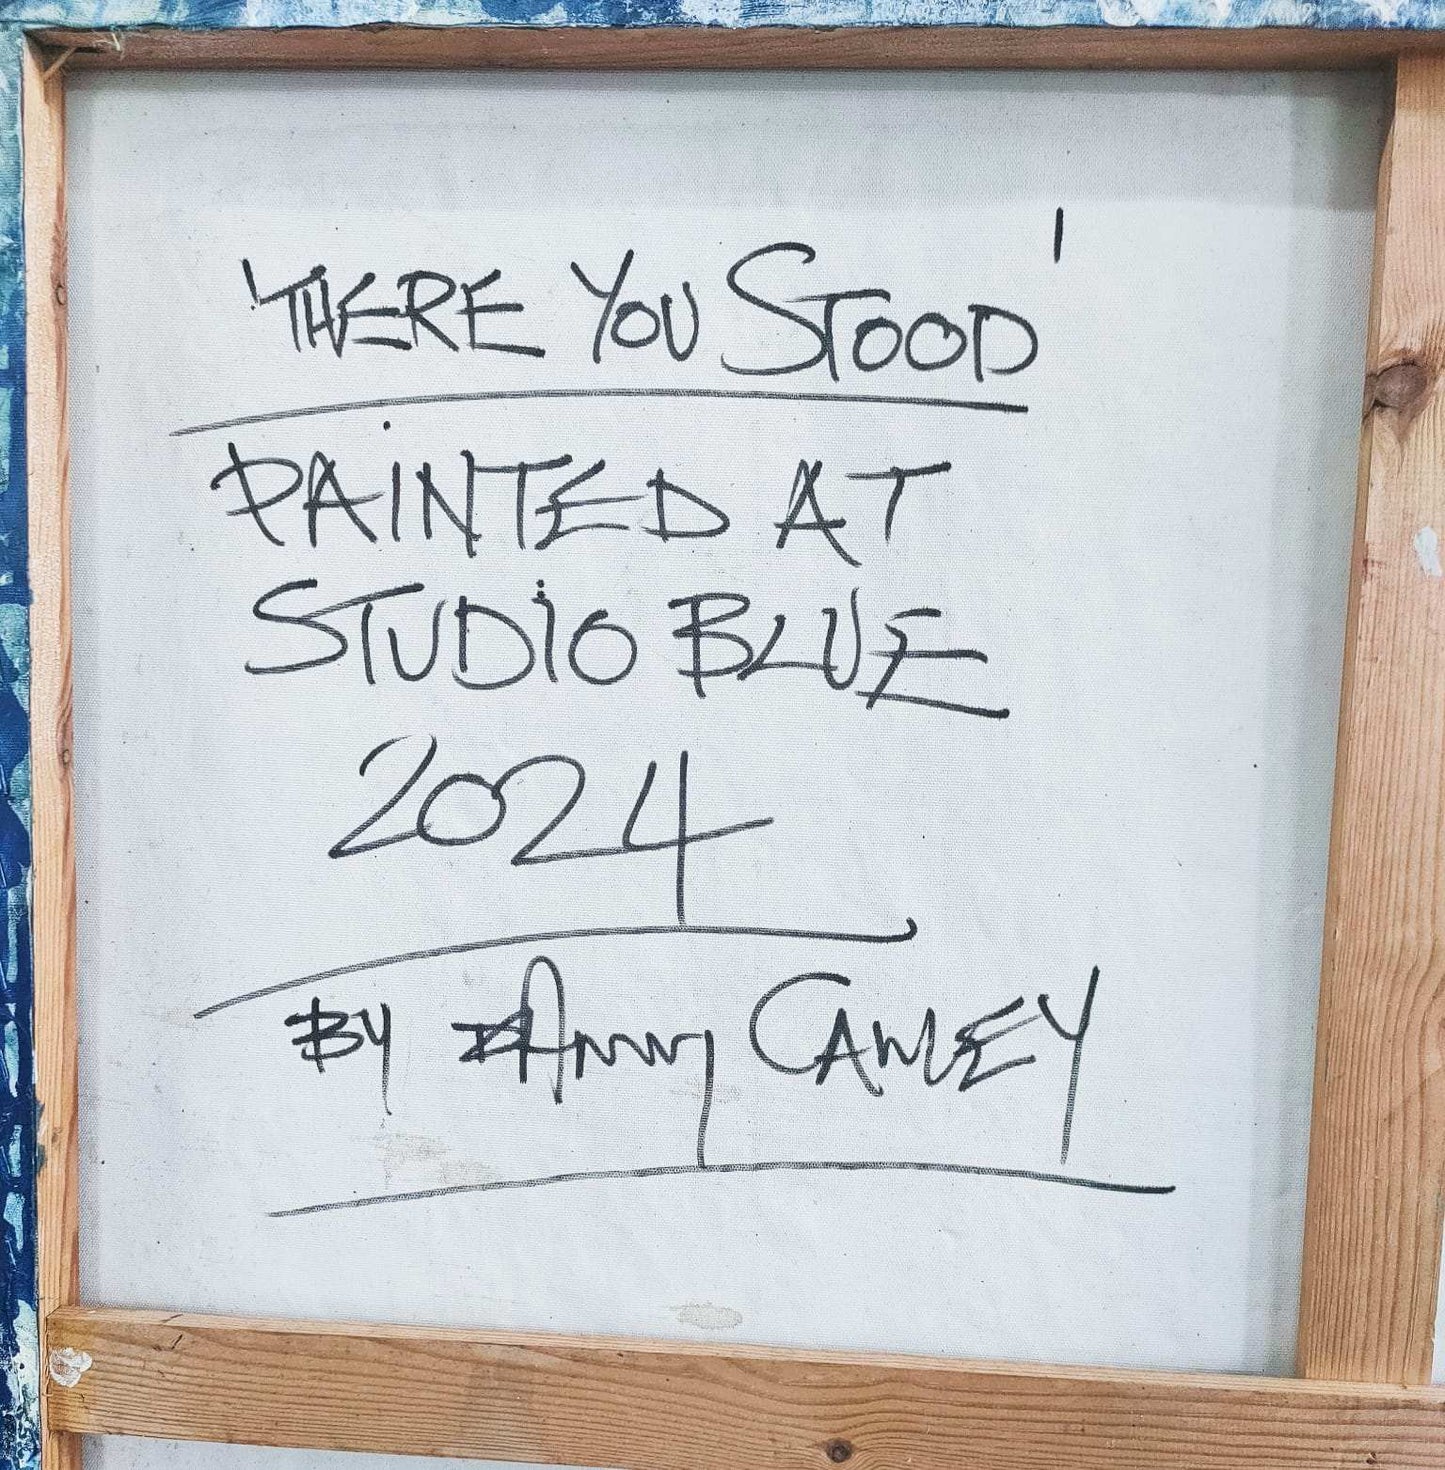 'THERE YOU STOOD'
PAiNTED AT
STUDiO BLUE
2024
BY DANNY CAWLEY